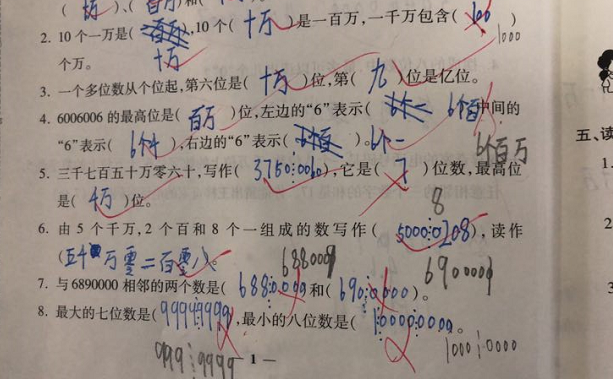 2. 10个一万是(十万),10个(十万)是一百万,一千万包含(100
1000
个万。 十万
3. 一个多位数从个位起,第六位是(十万)位,第(九)位是亿位。
4. 6006006的最高位是(百万)位,左边的“6”表示( 6个百 中间的
“6”表示(6个千),右边的“6”表示( )。6个一 6个百万
5. 三千七百五十万零六十,写作(37500060),它是( )位数,最高位
8
是(千万)位。
6. 由5个千万,2个百和8个一组成的数写作(50000208),读作
(五千万零二百零八)。 6880009 6900009
7. 与6890000相邻的两个数是(6880000)和(6900000)。
8. 最大的七位数是(9999999),最小的八位数是(10000000)。
9999999 10000000
— 1 —
五、读
1.
2
3.